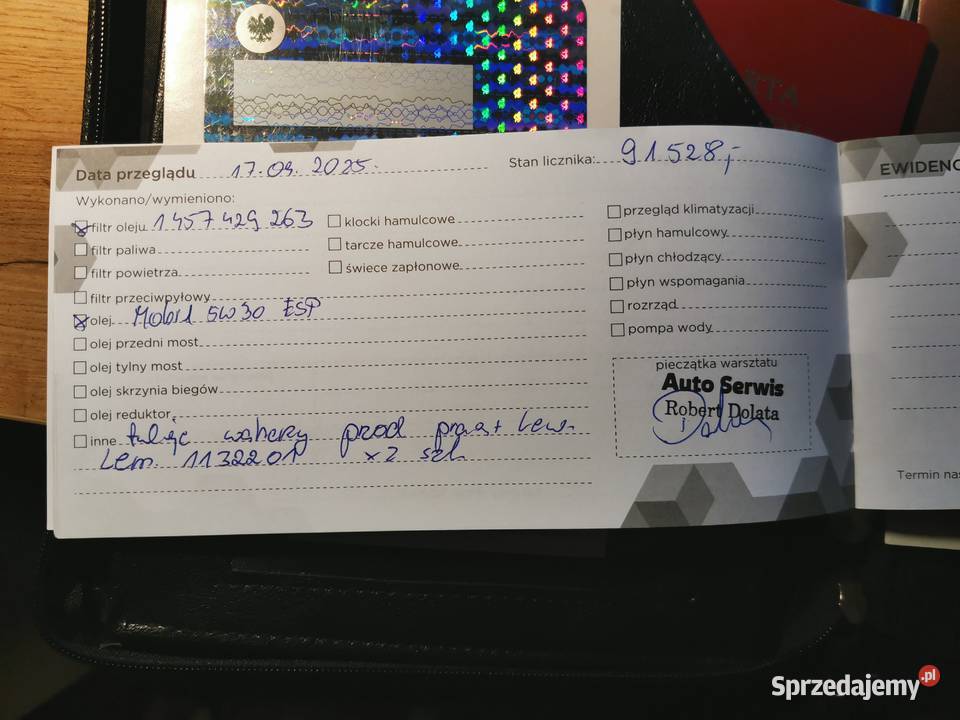 RTA
Data przeglądu 17.09.2025.
Stan licznika: 91528,-
EWIDENC
Wykonano/wymieniono:
filtr oleju 1457429263
klocki hamulcowe
przegląd klimatyzacji
filtr paliwa
tarcze hamulcowe
płyn hamulcowy
filtr powietrza
świece zapłonowe
płyn chłodzący
filtr przeciwpyłowy
płyn wspomagania
olej Mobil 5W30 ESP
rozrząd
olej przedni most
pompa wody
olej tylny most
olej skrzynia biegów
olej reduktor
pieczątka warsztatu
Auto Serwis
Robert Dolata
inne tuleje wahaczy przód prawa + lewa
Lem. 1132201 x2 szt.
Termin nas
Sprzedajemy.pl